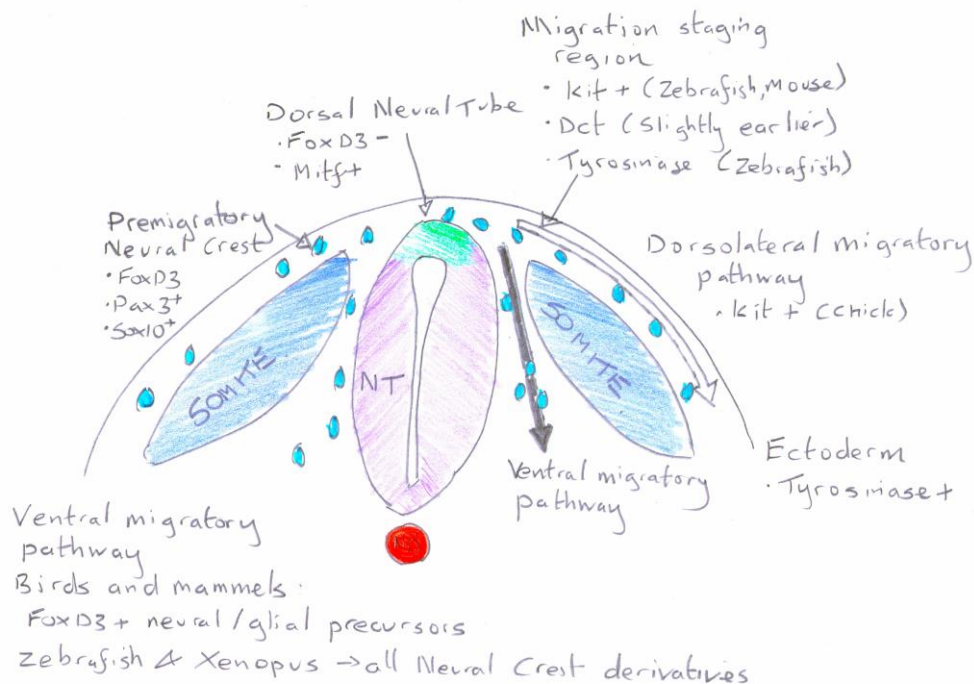 Migration staging
region
· Kit + (Zebrafish, Mouse)
· Dct (Slightly earlier)
· Tyrosinase (Zebrafish)
Dorsal Neural Tube
· FoxD3 -
- Mitf+
Premigratory
Neural Crest
· FoxD3
· Pax3+
· Sox10+
Dorsolateral migratory
pathway
· Kit + (Chick)
SOMITE
NT
SOMITE
Ectoderm
· Tyrosinase +
Ventral migratory
pathway
Ventral migratory
pathway
Birds and mammels:
FoxD3+ neural/glial precursors
Zebrafish & Xenopus → all Neural Crest derivatives